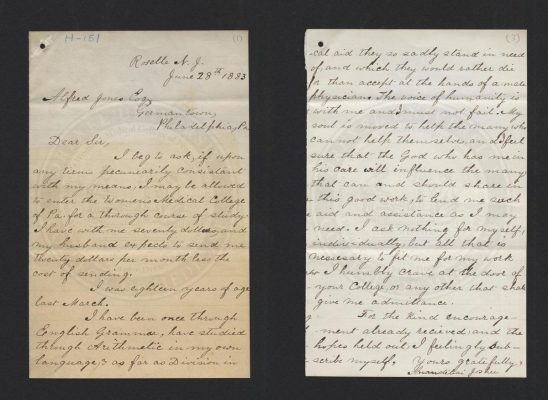 H-151
(1)
Roselle N. J.
June 28th 1883
Alfred Jones Esq
Germantown,
Philadelphia, Pa.
Dear Sir,
I beg to ask, if upon
any terms pecuniarily consistant
with my means, I may be allowed
to enter the Womens Medical College
of Pa. for a thorough course of study.
I have with me seventy dollars, and
my husband expects to send me
twenty dollars per month less the
cost of sending.
I was eighteen years of age
last March.
I have been once through
English Grammar, have studied
through Arithmetic in my own
language, & as far as Division in
(3)
-cal aid they so sadly stand in need
of, and which they would rather die
for than accept at the hands of a male
physician. The voice of humanity is
with me and I must not fail. My
soul is moved to help the many who
cannot help themselves, and I feel
sure that the God who has me in
his care will influence the many
that can and should share in
this good work, to lend me such
aid and assistance as I may
need. I ask nothing for myself,
individually, but all that is
necessary to fit me for my work
I humbly crave at the door of
your College, or any other that shall
give me admittance.
For the kind encourage-
-ment already recieved, and the
hopes held out, I feelingly sub-
scribe myself, Yours gratefully,
Anandibai Joshee